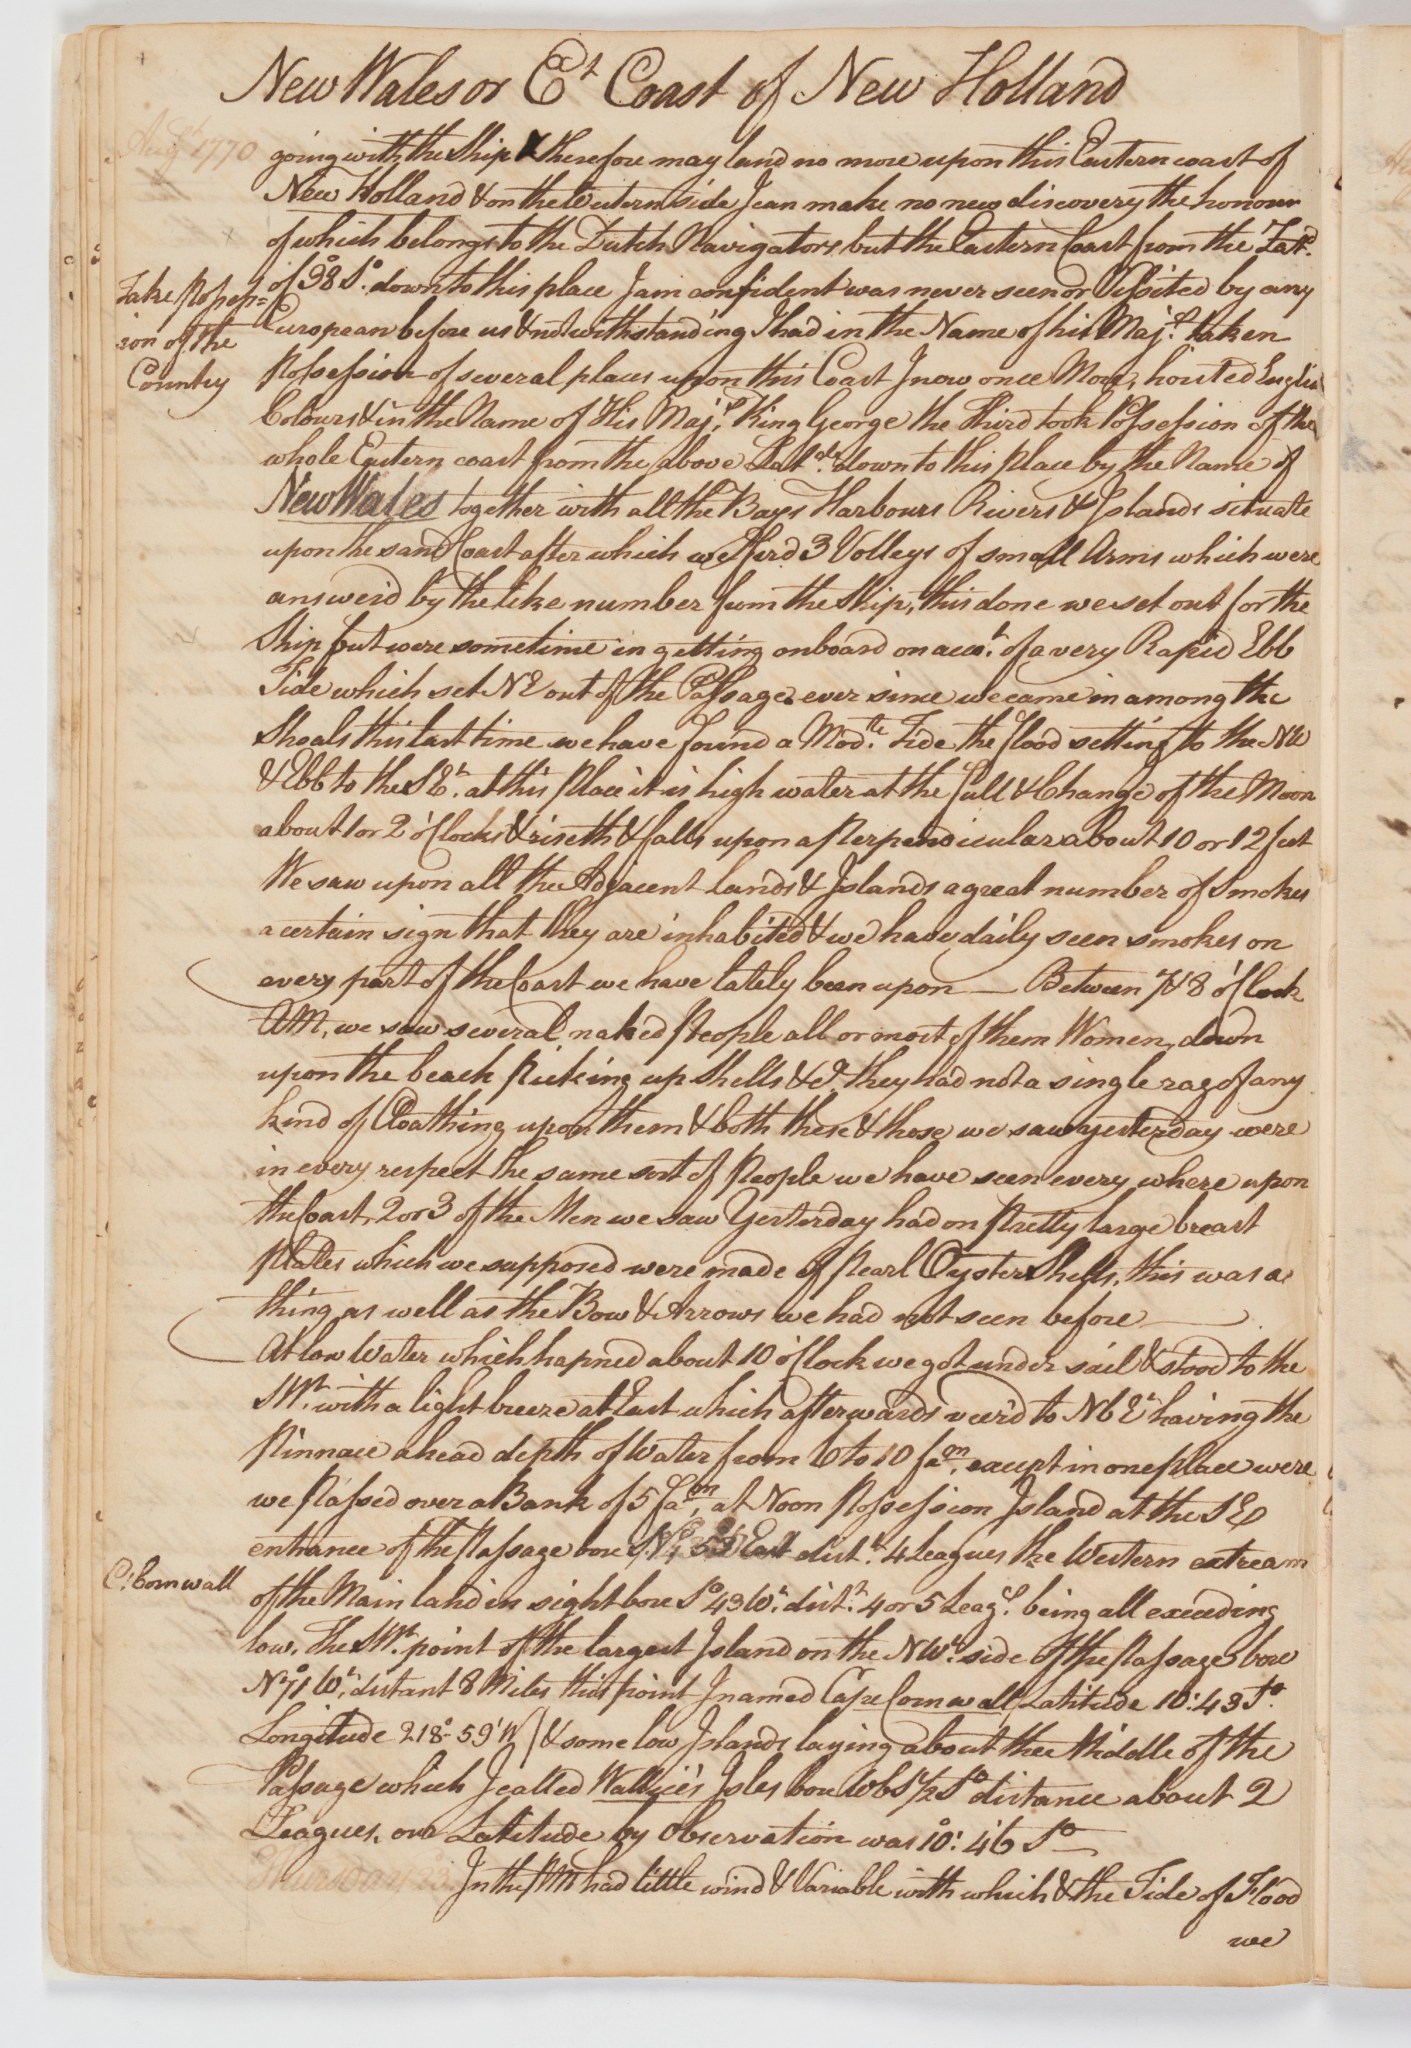 New Wales or Et Coast of New Holland
Augt 1770
going with the Ship & therefore may land no more upon this Eastern coast of
New Holland & on the Western side I can make no new discovery the honour
of which belongs to the Dutch Navigators but the Eastern Coast from the Latd.
of 38° So. down to this place I am confident was never seen or Visited by any
Take Posses=
sion of the
Country
European before us & notwithstanding I had in the Name of his Majs. taken
Possession of several places upon this Coast I now once More, hoisted English
Colours & in the Name of His Majs. King George the Third took Possession of the
whole Eastern coast from the above Latde. down to this place by the Name of
New Wales together with all the Bays Harbours Rivers & Islands situate
upon the same Coast after which we fired 3 Volleys of small Arms which were
answer'd by the like number from the Ship, this done we set out for the
Ship but were sometime in getting onboard on accot. of a very Rapid Ebb
Tide which set NE out of the Passage. ever since we came in among the
Shoals this last time we have found a Modte. Tide the flood setting to the NW
& Ebb to the SEt. at this Place it is high water at the full & Change of the Moon
about 1 or 2 o'Clocks & riseth & falls upon a Perpendicular about 10 or 12 feet
We saw upon all the Adjacent lands & Islands a great number of Smokes
a certain sign that they are inhabited & we have daily seen smokes on
every part of the Coast we have lately been upon — Between 7 & 8 o'Clock
AM, we saw several naked People all or most of them Women, down
upon the beach Picking up Shells &ca. they had not a single rag of any
kind of Cloathing upon them & both these & those we saw yesterday were
in every respect the same sort of People we have seen every where upon
the Coast, 2 or 3 of the Men we saw Yesterday had on Pretty large breast
Plates which we supposed were made of Pearl Oyster Shells, this was a
thing as well as the Bow & Arrows we had not seen before —
At low Water which hapned about 10 o'Clock we got under sail & stood to the
SWt. with a light breeze at East which afterwards veer'd to NbEt having the
Pinnace ahead depth of Water from 6 to 10 fam, except in one Place were
we Passed over a Bank of 5 fam, at Noon Possession Island at the SE
entrance of the Passage bore N 53 East distt. 4 leagues the Western extream
C: Cornwall
of the Main land in sight bore So 43 Wt. distt. 4 or 5 Leags. being all exceeding
low. The SWt. point of the largest Island on the NWt. side of the Passage bore
N 71° Wt. distant 8 Miles this point I named Cape Cornwall, Latitude 10°: 43' So.
Longitude 218°- 59' W & some low Islands laying about the Middle of the
Passage which I called Wallice's Isles bore WbS 1/2 So distance about 2
Leagues, our Latitude by Observation was 10°: 46' So —
Thursday 23.
In the PM had little wind & Variable with which & the Tide of Flood
we